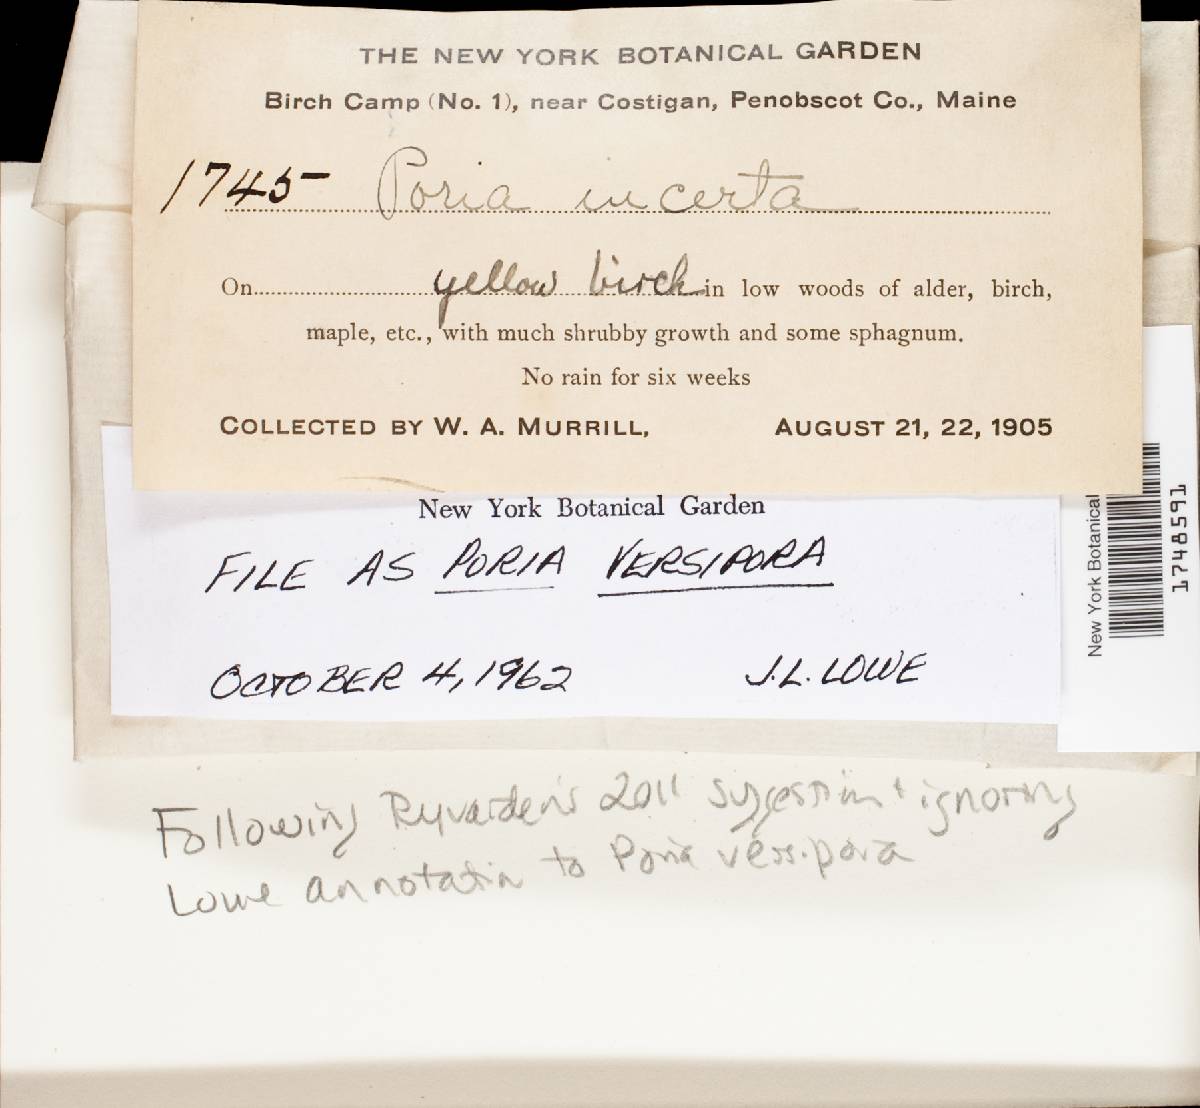 THE NEW YORK BOTANICAL GARDEN
Birch Camp (No. 1), near Costigan, Penobscot Co., Maine
1745 Poria incerta
On yellow birch in low woods of alder, birch,
maple, etc., with much shrubby growth and some sphagnum.
No rain for six weeks
COLLECTED BY W. A. MURRILL, AUGUST 21, 22, 1905
New York Botanical Garden
FILE AS PORIA VERSIPORA
OCTOBER 4, 1962 J.L. LOWE
New York Botanical
1748591
Following Ryvarden's 2011 suggestion + ignoring
Lowe annotation to Poria versipora